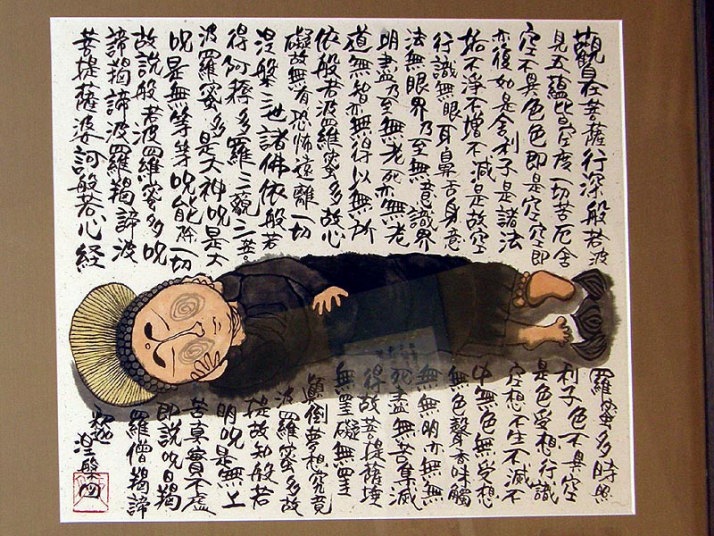 觀自在菩薩行深般若波羅蜜多時照
見五蘊皆空度一切苦厄舍利子色不異空
空不異色色即是空空即是色受想行識
亦復如是舍利子是諸法空想不生不滅不
垢不淨不增不減是故空中無色無受想
行識無眼耳鼻舌身意無色聲香味觸
法無眼界乃至無意識界無無明亦無無
明盡乃至無老死亦無老死盡無苦集滅
道無智亦無得以無所得故菩提薩埵
依般若波羅蜜多故心無罣礙無罣
礙故無有恐怖遠離一切顛倒夢想究竟
涅槃三世諸佛依般若波羅蜜多故
得阿耨多羅三藐三菩提故知般若
波羅蜜多是大神呪是大明呪是無上
呪是無等等呪能除一切苦真實不虛
故說般若波羅蜜多呪即說呪曰羯
諦羯諦波羅羯諦波羅僧羯諦
菩提薩婆訶般若心経